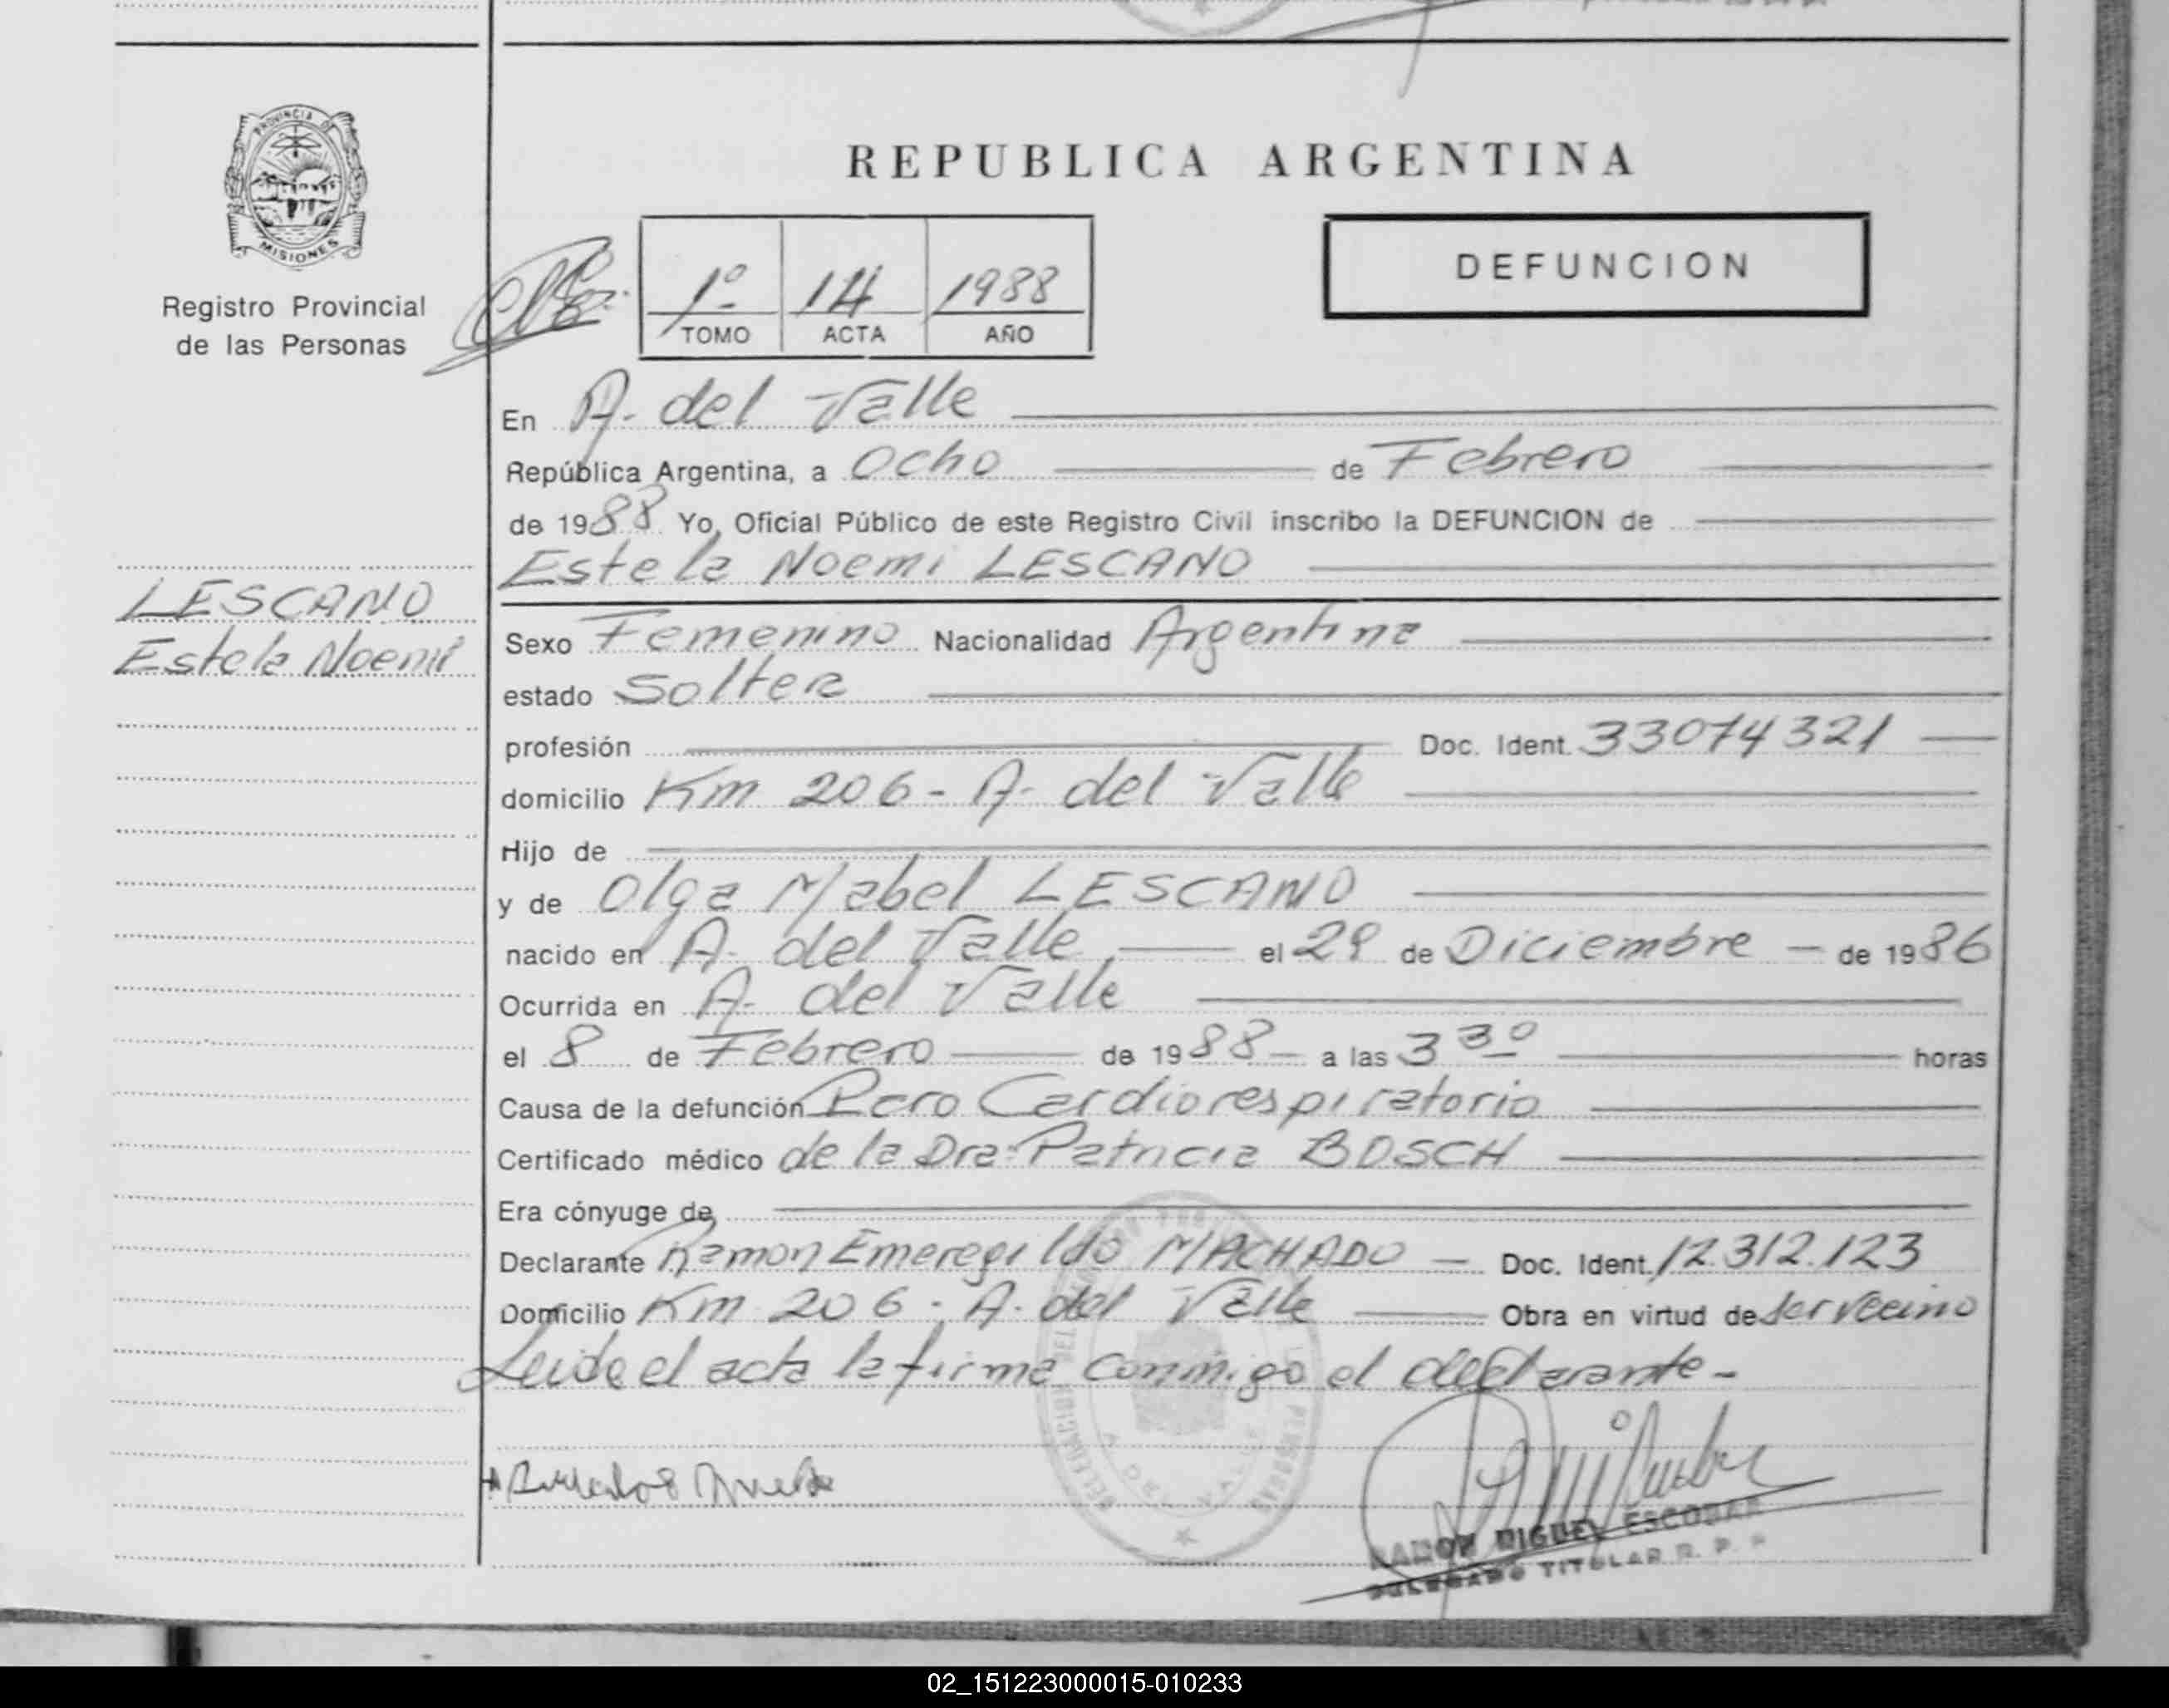 PROVINCIA DE
MISIONES
Registro Provincial
de las Personas
REPUBLICA ARGENTINA
1º 14 1988
TOMO ACTA AÑO
DEFUNCION
En A. del Valle
República Argentina, a Ocho de Febrero
de 1988 Yo, Oficial Público de este Registro Civil inscribo la DEFUNCION de
Estela Noemi LESCANO
LESCANO
Estela Noemí
Sexo Femenino Nacionalidad Argentina
estado Soltera
profesión Doc. Ident. 33074321
domicilio Km 206 - A. del Valle
Hijo de
y de Olga Mabel LESCANO
nacido en A. del Valle el 29 de Diciembre de 1986
Ocurrida en A. del Valle
el 8 de Febrero de 1988 a las 3 30 horas
Causa de la defunción Paro Cardiorespiratorio
Certificado médico de la Dra. Patricia BOSCH
Era cónyuge de
Declarante Ramon Emeregildo MACHADO Doc. Ident. 12.312.123
Domicilio Km 206 - A. del Valle Obra en virtud de ser vecino
Leida el acta la firma conmigo el declarante -
RAMON MIGUEL ESCOBAR
DELEGADO TITULAR R. P. P
02_151223000015-010233